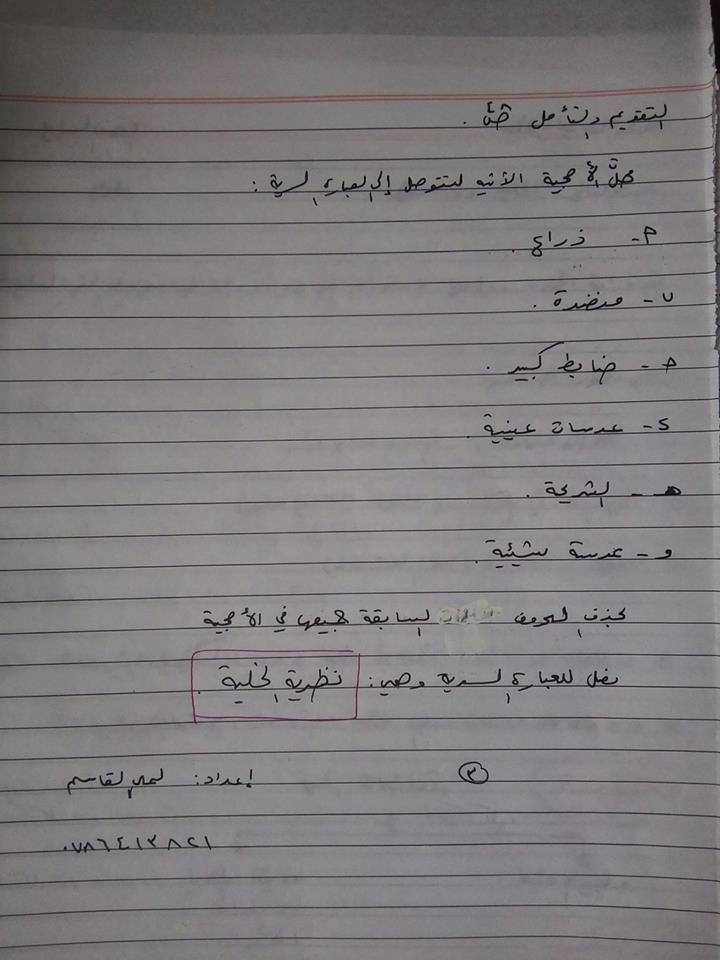 التقويم والتأمل ص٨١.
حلّ الأحجية الآتية لتتوصل إلى العبارة السرية :
أ- ذراع.
ب- منضدة.
ج- ضابط كبير.
د- عدسات عينية.
هـ - الشريحة.
و- عدسة شيئية.
بحذف الحروف السابقة جميعها في الأحجية
نصل للعبارة السرية وهي: نظرية الخلية.
٣ إعداد: لمى القاسم
٠٧٨٦٤١٣٨٢١